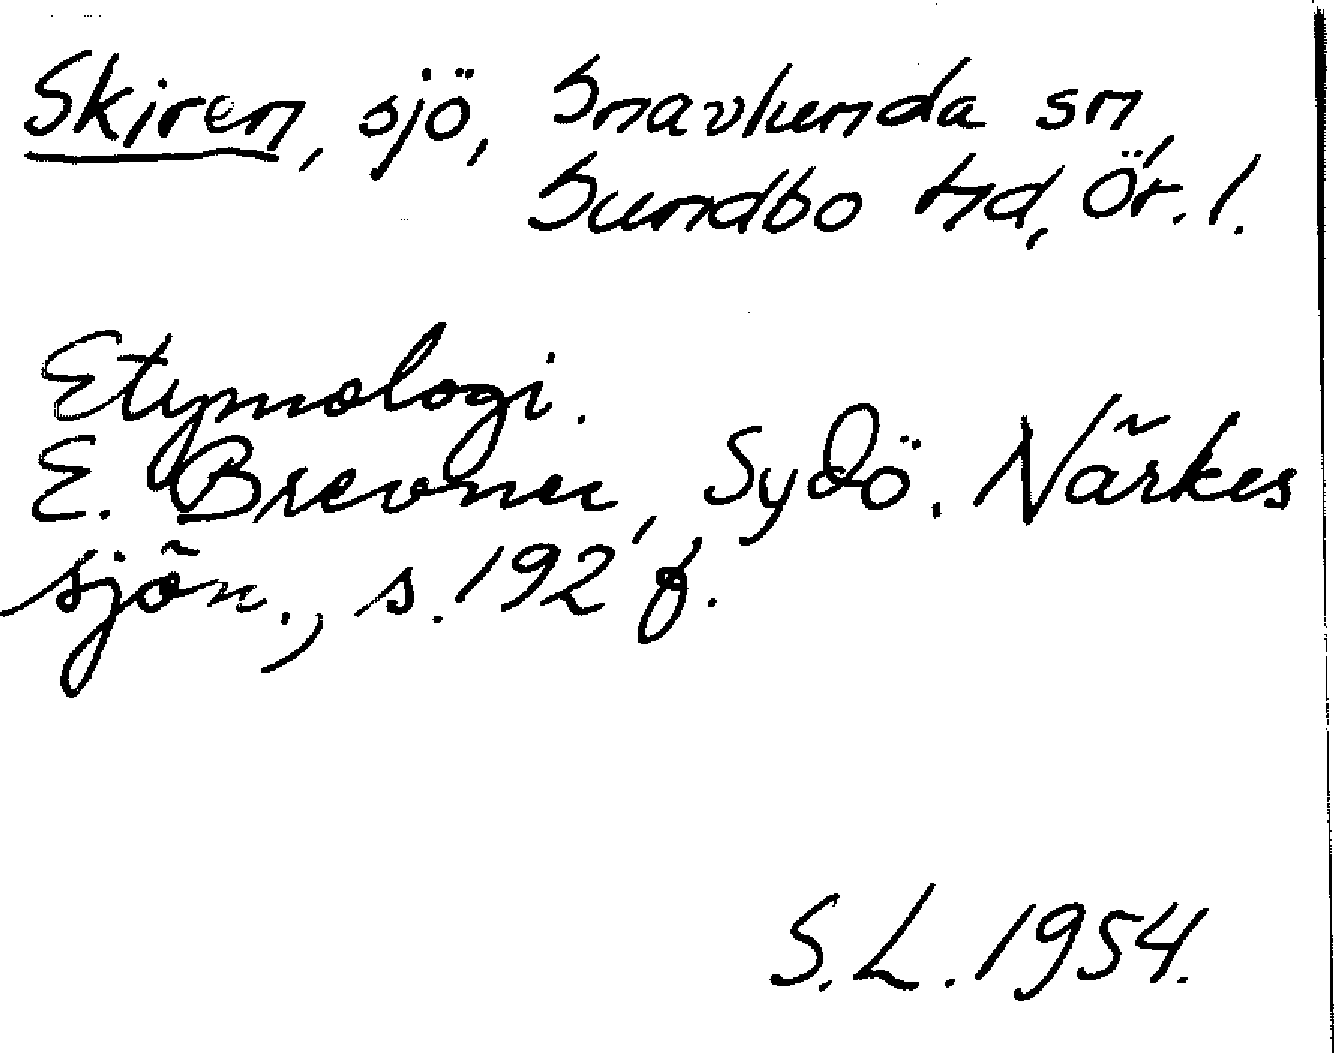 Skiren, sjö, Snavlunda sn,
Sundbo hd, Ör. l.
Etymologi.
E. Brevner, Sydö. Närkes
sjön., s. 192 f.
S. L. 1954.